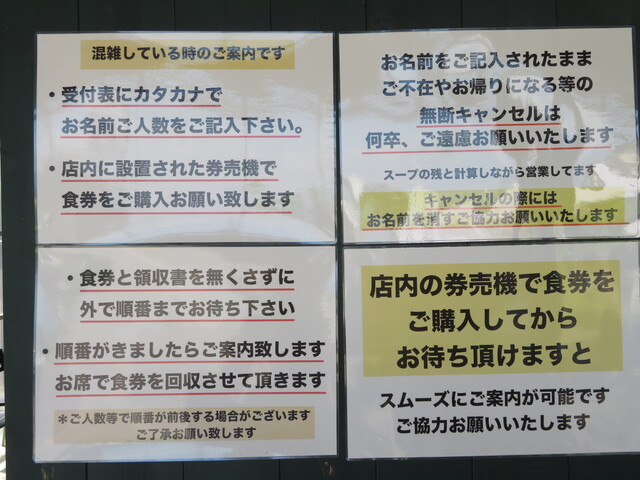 混雑している時のご案内です
・受付表にカタカナで
お名前ご人数をご記入下さい。
・店内に設置された券売機で
食券をご購入お願い致します
お名前をご記入されたまま
ご不在やお帰りになる等の
無断キャンセルは
何卒、ご遠慮お願いいたします
スープの残と計算しながら営業してます
キャンセルの際には
お名前を消すご協力お願いいたします
・食券と領収書を無くさずに
外で順番までお待ち下さい
・順番がきましたらご案内致します
お席で食券を回収させて頂きます
＊ご人数等で順番が前後する場合がございます
ご了承お願い致します
店内の券売機で食券を
ご購入してから
お待ち頂けますと
スムーズにご案内が可能です
ご協力お願いいたします